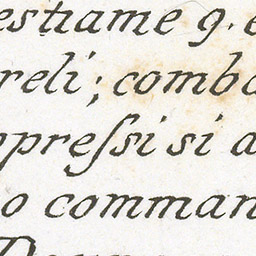 estiame g. e
reli; comba
ppreſsi si a
o comman